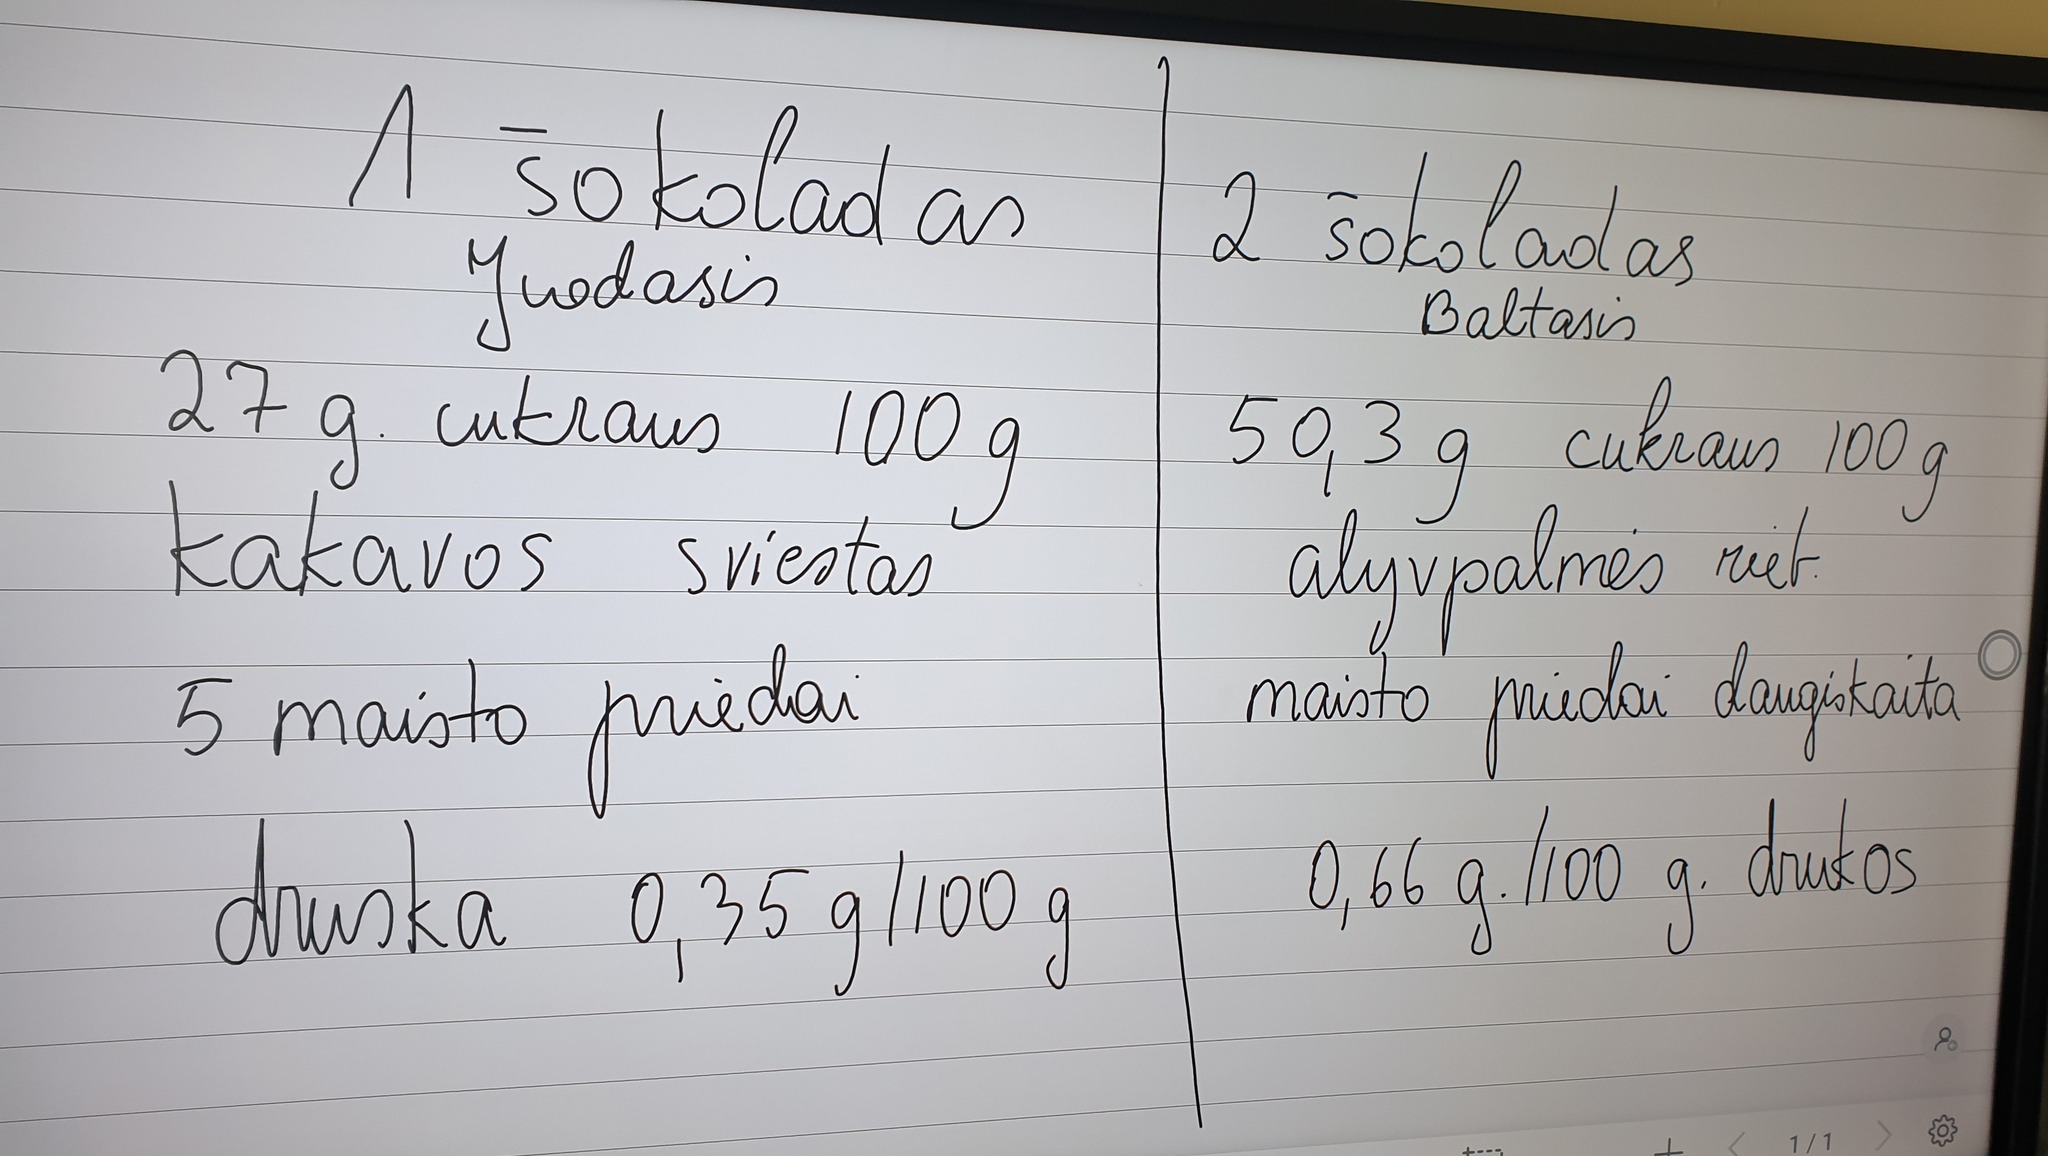 1 šokoladas
Juodasis
27 g. cukraus 100 g
kakavos sviestas
5 maisto priedai
druska 0,35 g/100 g
2 šokoladas
Baltasis
50,3 g cukraus 100 g
alyvpalmės riet.
maisto priedai daugiskaita
0,66 g./100 g. drukos
1/1